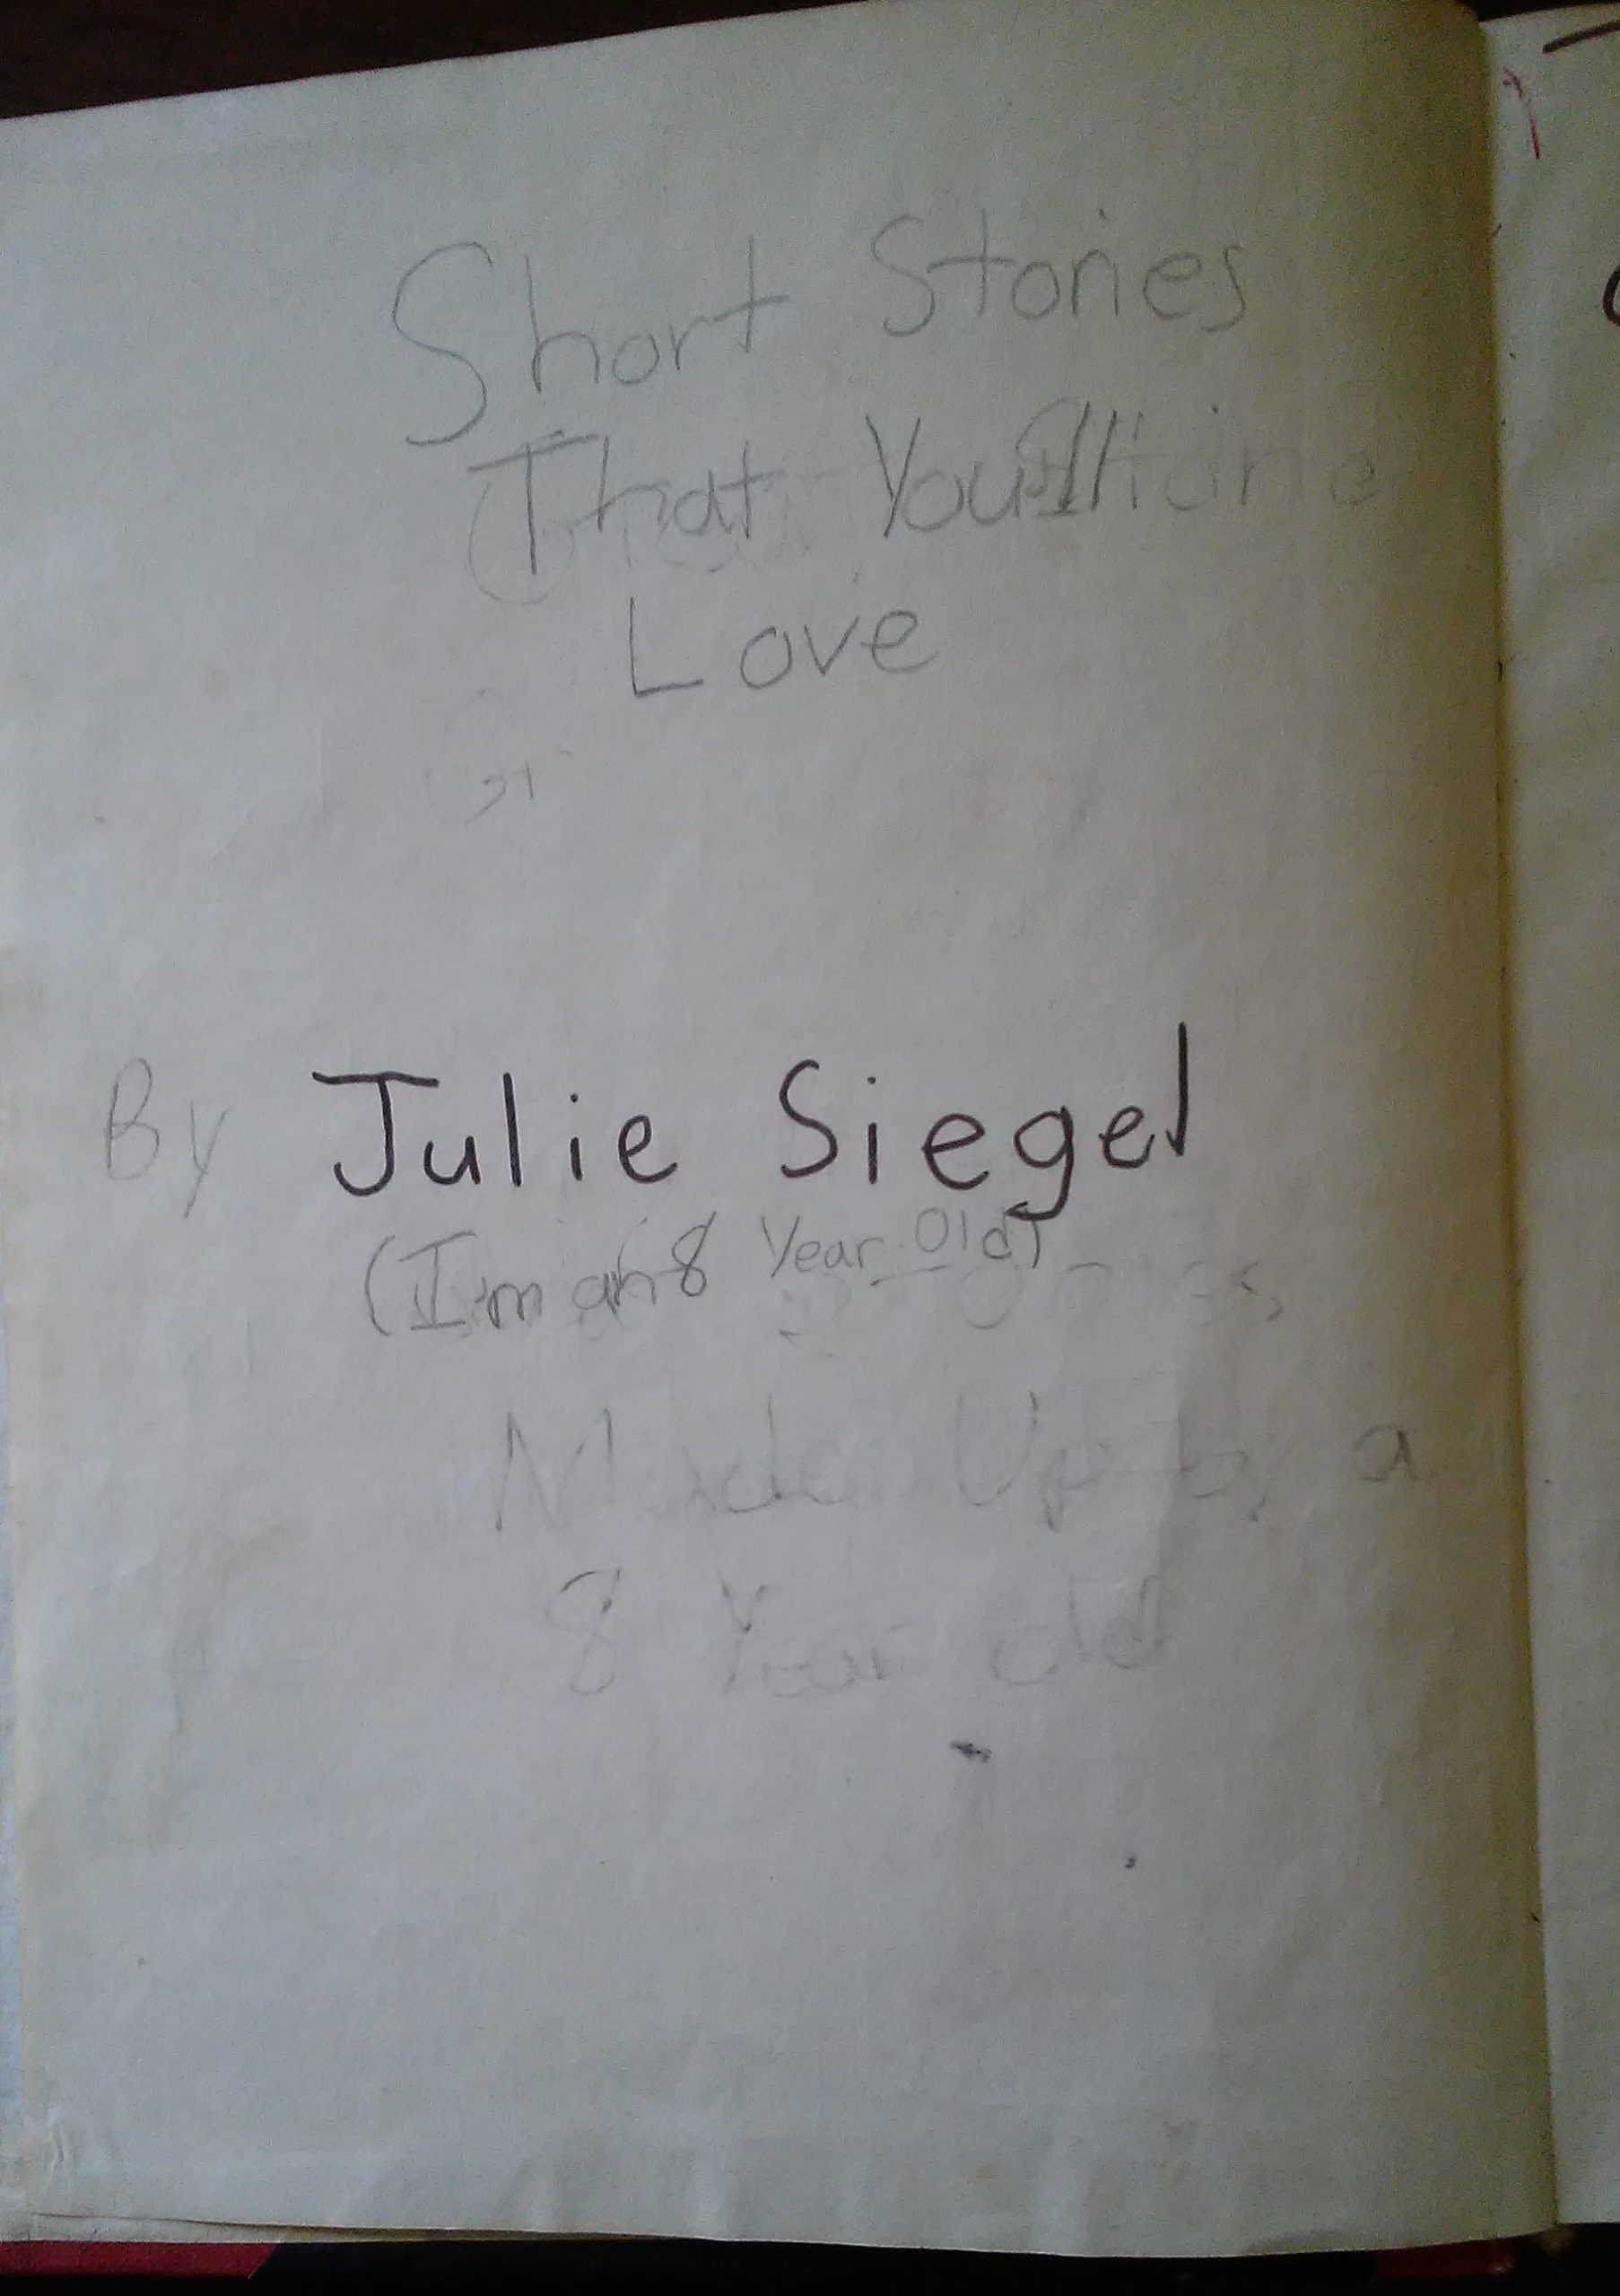 Short Stories
That You'll
Love
By Julie Siegel
(I'm an 8 Year Old)
Made Up by a
8 Year old